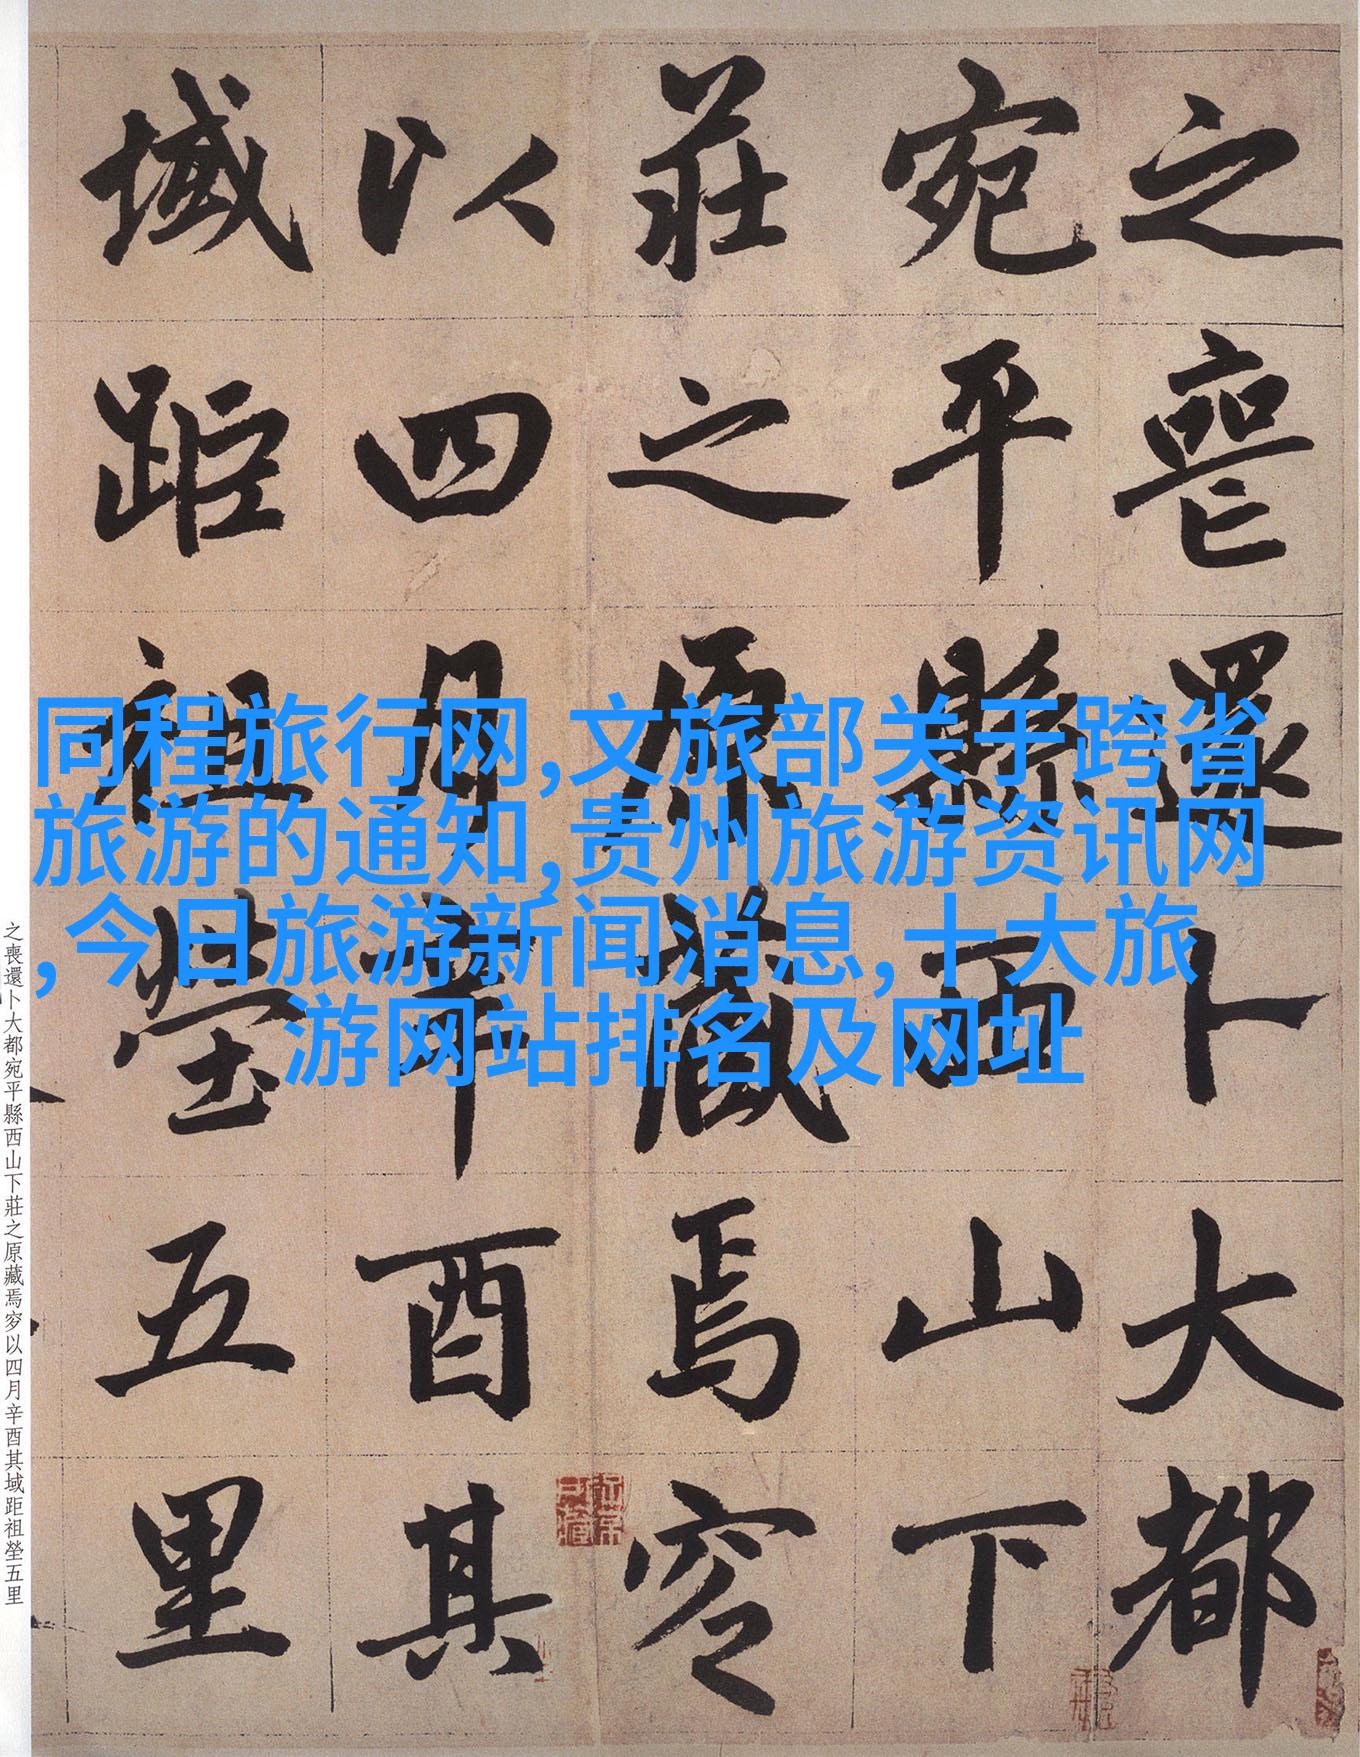 之喪還卜大都
宛平縣西山下
莊之原藏焉穸
以四月辛酉其
域距祖塋五里
同程旅行网,文旅部关于跨省
旅游的通知,贵州旅游资讯网
,今日旅游新闻消息,十大旅
游网站排名及网址
之喪還卜大都宛平縣西山下莊之原藏焉穸以四月辛酉其域距祖塋五里